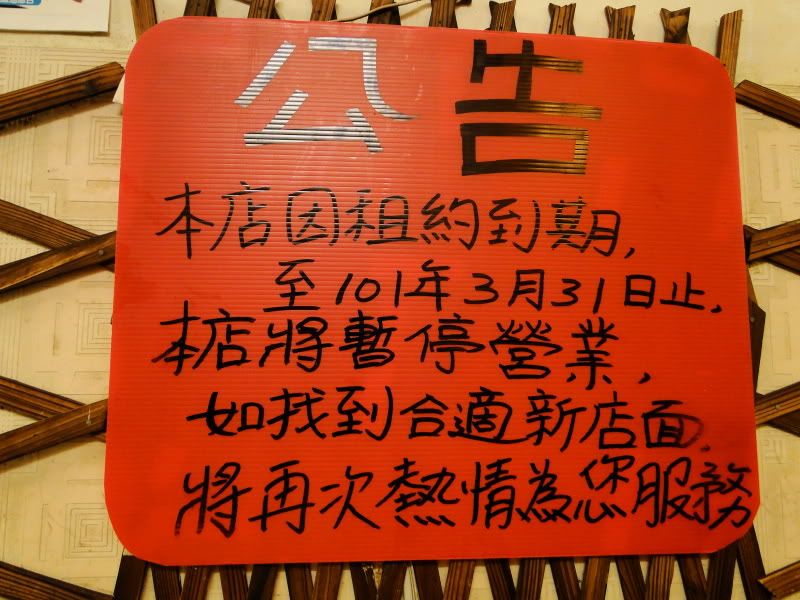 公告
本店因租約到期,
至101年3月31日止,
本店將暫停營業,
如找到合適新店面,
將再次熱情為您服務